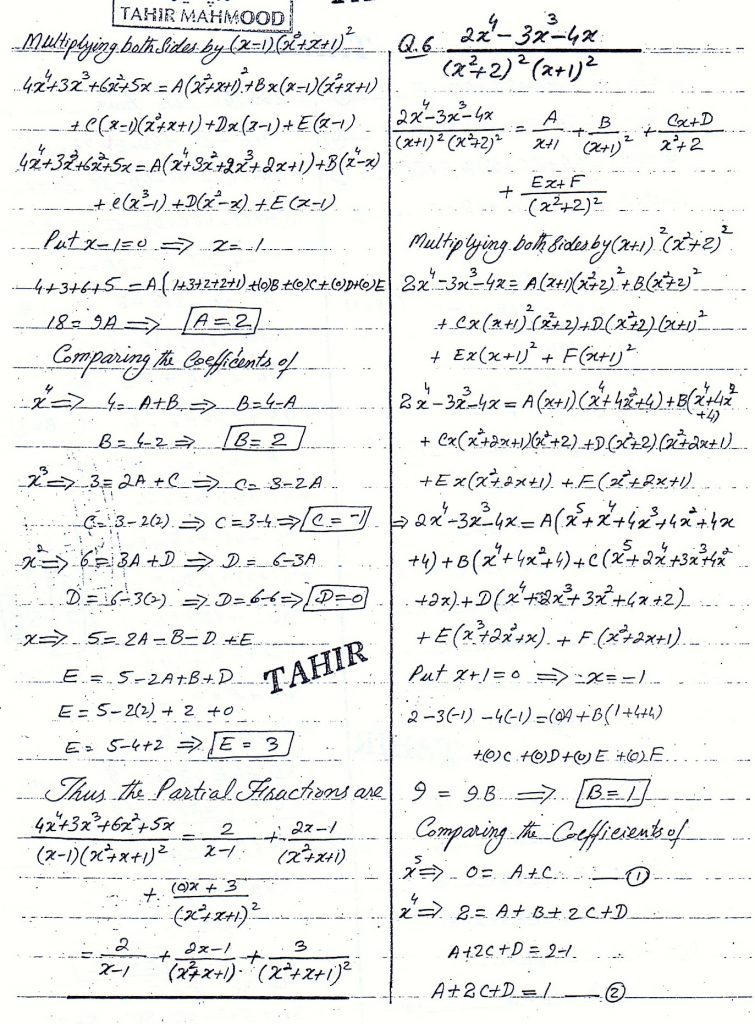 TAHIR MAHMOOD
Multiplying both Sides by (x-1)(x²+x+1)²
4x⁴+3x³+6x²+5x = A(x²+x+1)²+Bx(x-1)(x²+x+1)
+C(x-1)(x²+x+1)+Dx(x-1)+E(x-1)
4x⁴+3x³+6x²+5x = A(x⁴+3x²+2x³+2x+1)+B(x⁴-x)
+c(x³-1)+D(x²-x)+E(x-1)
Put x-1=0 ⇒ x=1
4+3+6+5 = A(1+3+2+2+1)+(0)B+(0)C+(0)D+(0)E
18=9A ⇒ A=2
Comparing the Coefficients of
x⁴ ⇒ 4=A+B ⇒ B=4-A
B=4-2 ⇒ B=2
x³ ⇒ 3=2A+C ⇒ C=3-2A
C=3-2(2) ⇒ C=3-4 ⇒ C=-1
x² ⇒ 6=3A+D ⇒ D=6-3A
D=6-3(2) ⇒ D=6-6 ⇒ D=0
x ⇒ 5=2A-B-D+E
E = 5-2A+B+D
TAHIR
E = 5-2(2)+2+0
E = 5-4+2 ⇒ E=3
Thus the Partial Fractions are
4x⁴+3x³+6x²+5x/(x-1)(x²+x+1)² = 2/x-1 + 2x-1/(x²+x+1)
+ (0)x+3/(x²+x+1)²
= 2/x-1 + 2x-1/(x²+x+1) + 3/(x²+x+1)²
Q.6 2x⁴-3x³-4x/(x²+2)²(x+1)²
2x⁴-3x³-4x/(x+1)²(x²+2)² = A/x+1 + B/(x+1)² + Cx+D/x²+2
+ Ex+F/(x²+2)²
Multiplying both Sides by (x+1)²(x²+2)²
2x⁴-3x³-4x = A(x+1)(x²+2)²+B(x²+2)²
+Cx(x+1)²(x²+2)+D(x²+2)(x+1)²
+Ex(x+1)²+F(x+1)²
2x⁴-3x³-4x = A(x+1)(x⁴+4x²+4)+B(x⁴+4x²
+4)
+Cx(x²+2x+1)(x²+2)+D(x²+2)(x²+2x+1)
+Ex(x²+2x+1)+F(x²+2x+1)
⇒ 2x⁴-3x³-4x = A(x⁵+x⁴+4x³+4x²+4x
+4)+B(x⁴+4x²+4)+C(x⁵+2x⁴+3x³+4x²
+2x)+D(x⁴+2x³+3x²+4x+2)
+E(x³+2x²+x)+F(x²+2x+1)
Put x+1=0 ⇒ x=-1
2-3(-1)-4(-1)=(0)A+B(1+4+4)
+(0)C+(0)D+(0)E+(0)F
9 = 9B ⇒ B=1
Comparing the Coefficients of
x⁵ ⇒ 0=A+C ①
x⁴ ⇒ 2=A+B+2C+D
A+2C+D=2-1
A+2C+D=1 ②